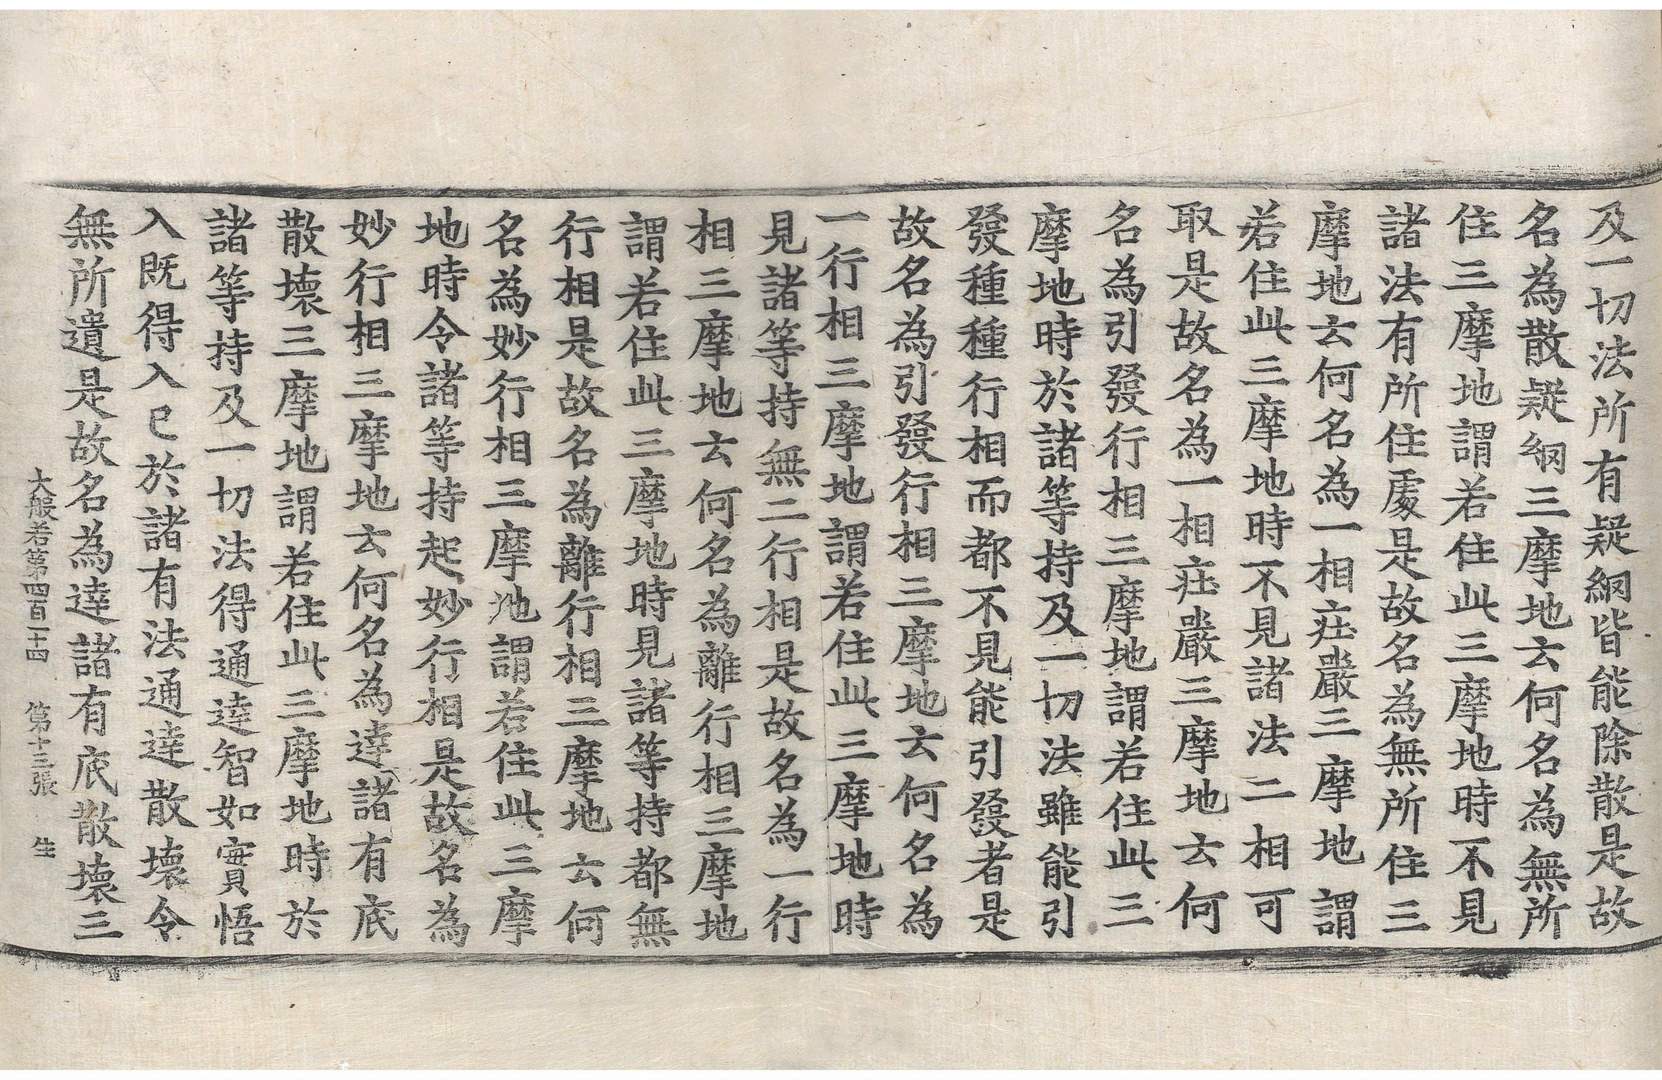 及一切法所有疑網皆能除散是故
名為散疑網三摩地云何名為無所
住三摩地謂若住此三摩地時不見
諸法有所住處是故名為無所住三
摩地云何名為一相莊嚴三摩地謂
若住此三摩地時不見諸法二相可
取是故名為一相莊嚴三摩地云何
名為引發行相三摩地謂若住此三
摩地時於諸等持及一切法雖能引
發種種行相而都不見能引發者是
故名為引發行相三摩地云何名為
一行相三摩地謂若住此三摩地時
見諸等持無二行相是故名為一行
相三摩地云何名為離行相三摩地
謂若住此三摩地時見諸等持都無
行相是故名為離行相三摩地云何
名為妙行相三摩地謂若住此三摩
地時令諸等持起妙行相是故名為
妙行相三摩地云何名為達諸有底
散壞三摩地謂若住此三摩地時於
諸等持及一切法得通達智如實悟
入既得入已於諸有法通達散壞令
無所遺是故名為達諸有底散壞三
大般若第四百一十四 第十三張 生